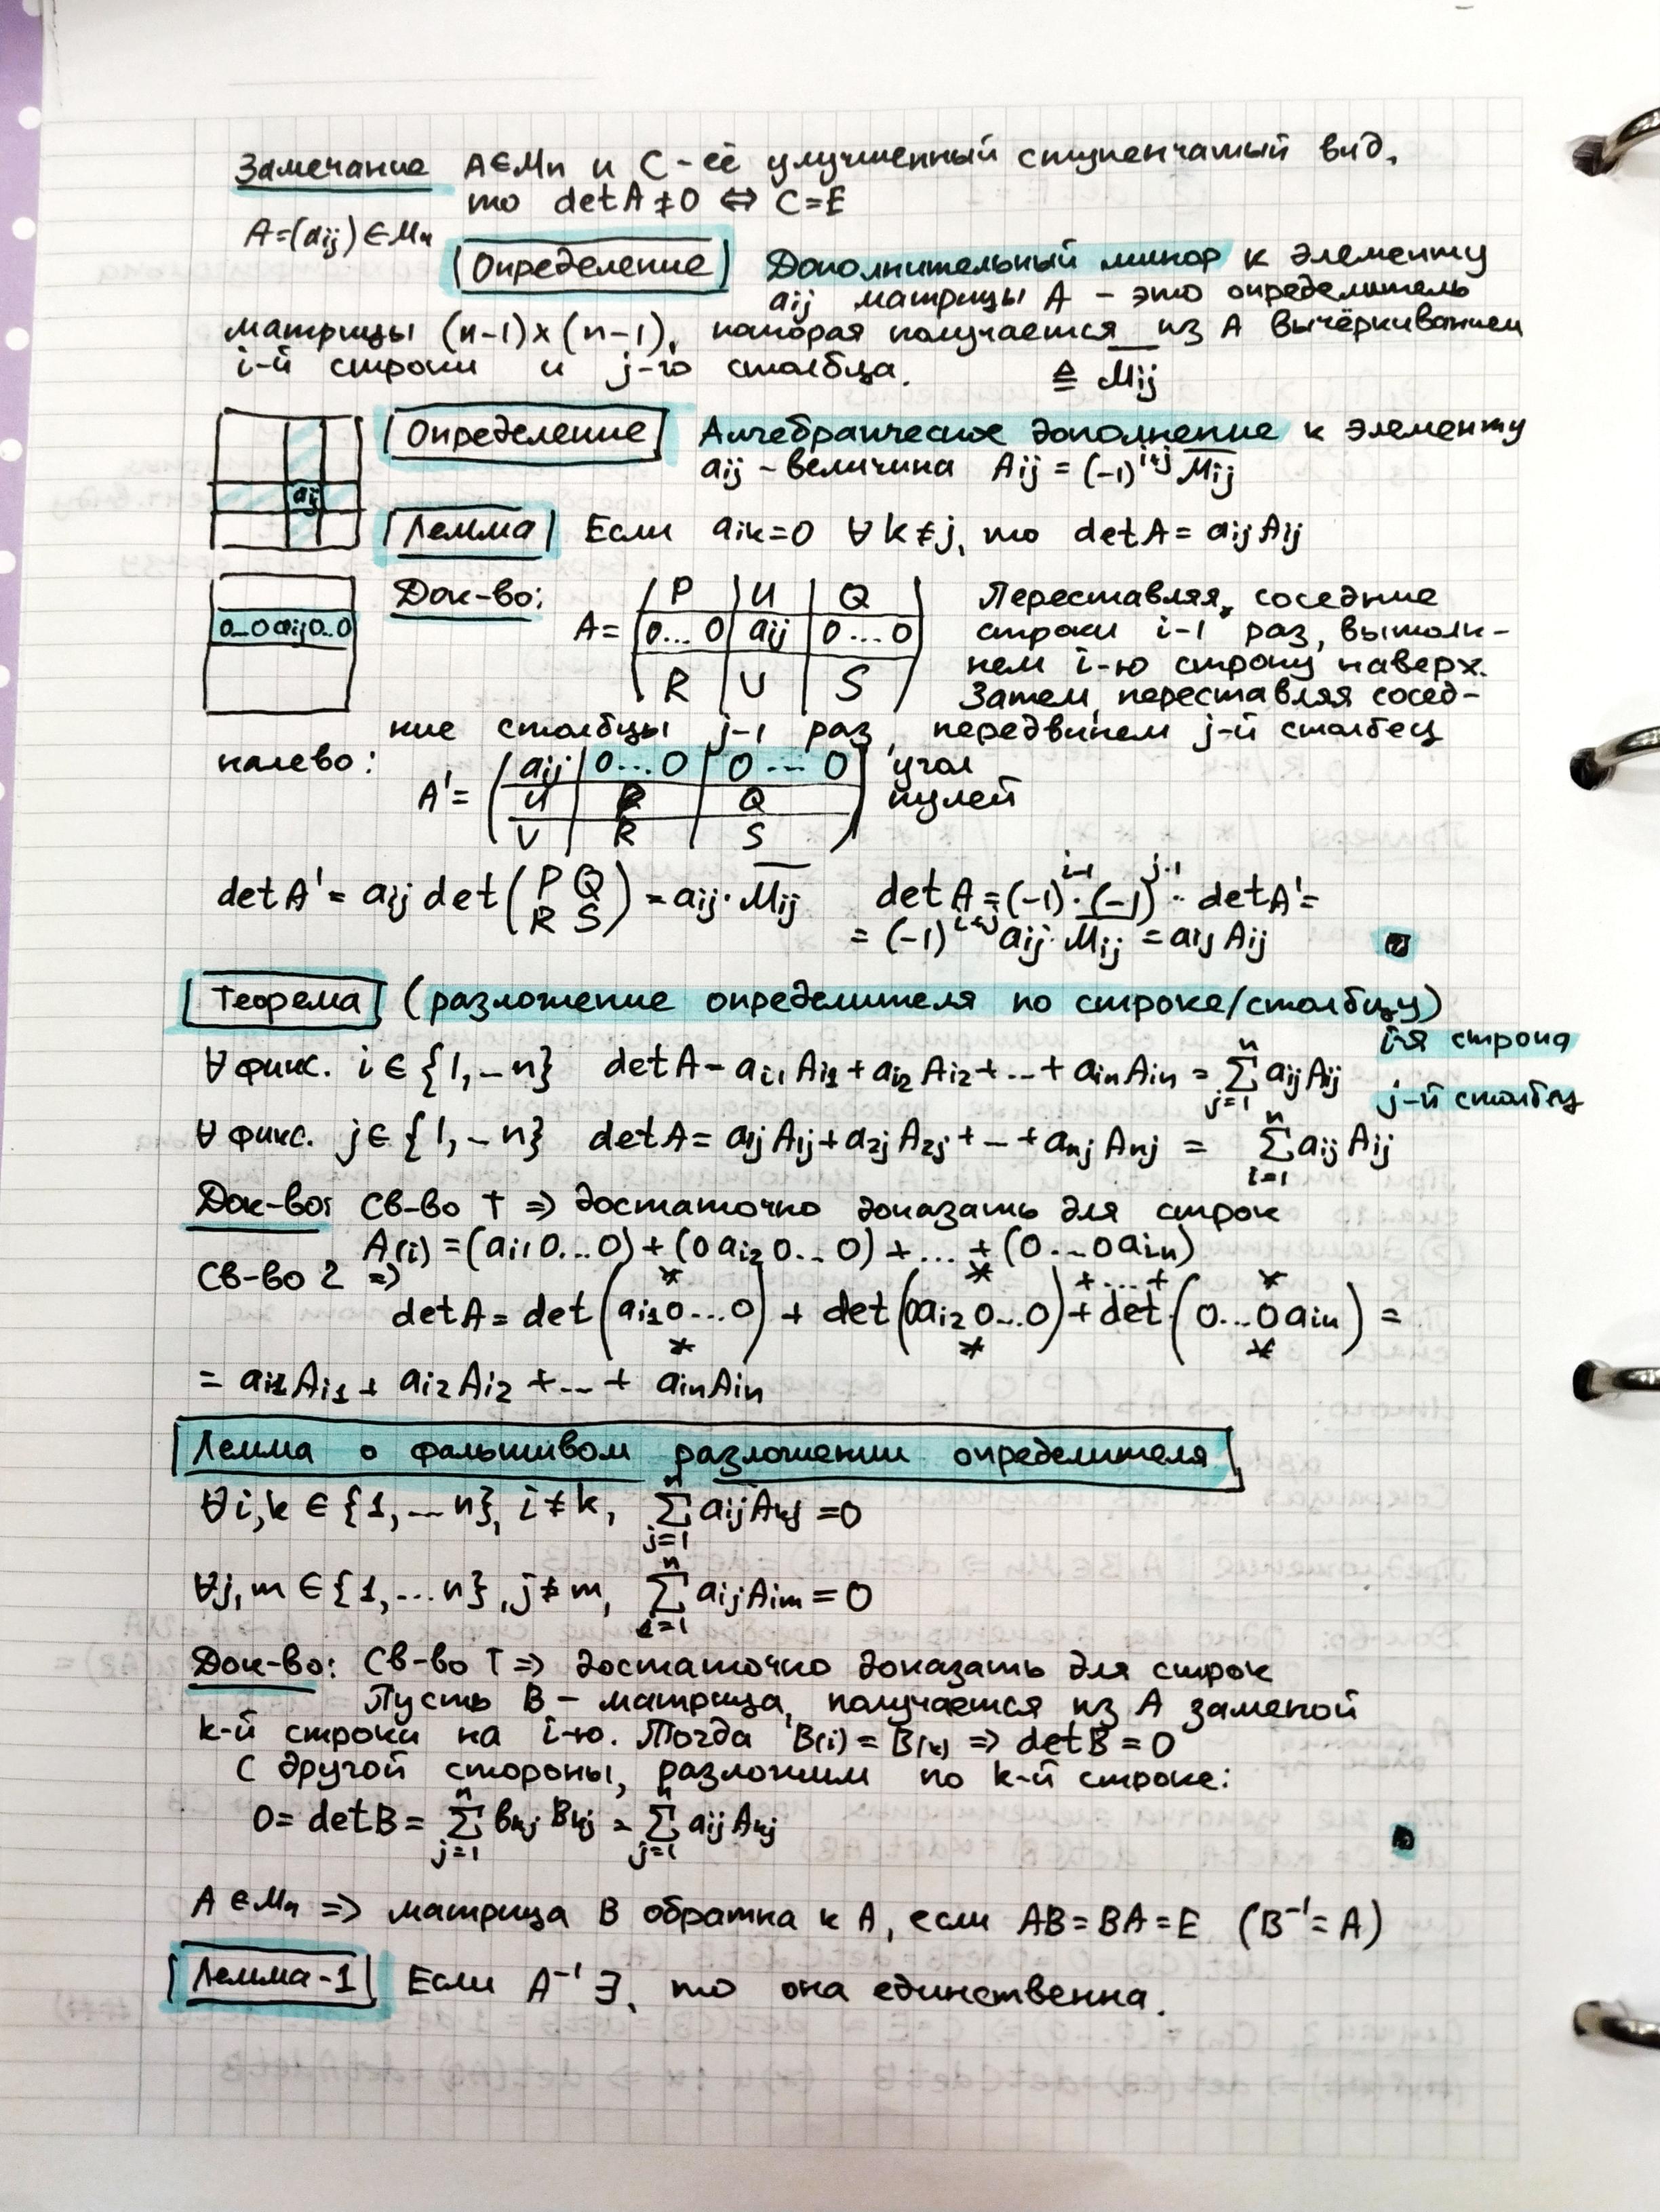 Замечание A∈Mn и C - её улучшенный ступенчатый вид,
то detA≠0 ⇔ C=E
A=(aij)∈Mn
Определение Дополнительный минор к элементу
aij матрицы A - это определитель
матрицы (n-1)×(n-1), которая получается из A вычёркиванием
i-й строки и j-го столбца. ≜ M̅ij
Определение Алгебраическое дополнение к элементу
aij - величина Aij = (-1)^i+j M̅ij
aij
Лемма Если aik=0 ∀k≠j, то detA = aij Aij
0...0 aij 0..0
Док-во: A= ( P | U | Q
0...0 | aij | 0...0
R | V | S )
Переставляя соседние
строки i-1 раз, вытолк-
нем i-ю строку наверх.
Затем, переставляя сосед-
ние столбцы j-1 раз, передвинем j-й столбец
налево: A'= ( aij | 0...0 | 0...0
U | P | Q
V | R | S ) угол
нулей
detA' = aij det (P Q
R S) = aij · M̅ij detA = (-1)^i-1 · (-1)^j-1 · detA' =
= (-1)^i+j aij · M̅ij = aij Aij
Теорема (разложение определителя по строке/столбцу)
i-я строка
∀ фикс. i ∈ {1, ... n} detA = ai1 Ai1 + ai2 Ai2 + ... + ain Ain = Σ_{j=1}^n aij Aij
j-й столбец
∀ фикс. j ∈ {1, ... n} detA = a1j A1j + a2j A2j + ... + anj Anj = Σ_{i=1}^n aij Aij
Док-во: Св-во T ⇒ достаточно доказать для строк
A(i) = (ai1 0...0) + (0 ai2 0...0) + ... + (0...0 ain)
Св-во 2 ⇒
detA = det ( * ai1 0...0 * ) + det ( * 0 ai2 0...0 * ) + ... + det ( * 0...0 ain * ) =
= ai1 Ai1 + ai2 Ai2 + ... + ain Ain
Лемма о фальшивом разложении определителя
∀i,k ∈ {1, ... n}, i≠k, Σ_{j=1}^n aij Akj = 0
∀j,m ∈ {1, ... n}, j≠m, Σ_{i=1}^n aij Aim = 0
Док-во: Св-во T ⇒ достаточно доказать для строк
Пусть B - матрица, получается из A заменой
k-й строки на i-ю. Тогда B(i) = B(k) ⇒ detB = 0
С другой стороны, разложим по k-й строке:
0 = detB = Σ_{j=1}^n bkj Bkj = Σ_{j=1}^n aij Akj
A∈Mn ⇒ матрица B обратна к A, если AB=BA=E (B⁻¹=A)
Лемма-1 Если A⁻¹ ∃, то она единственна.